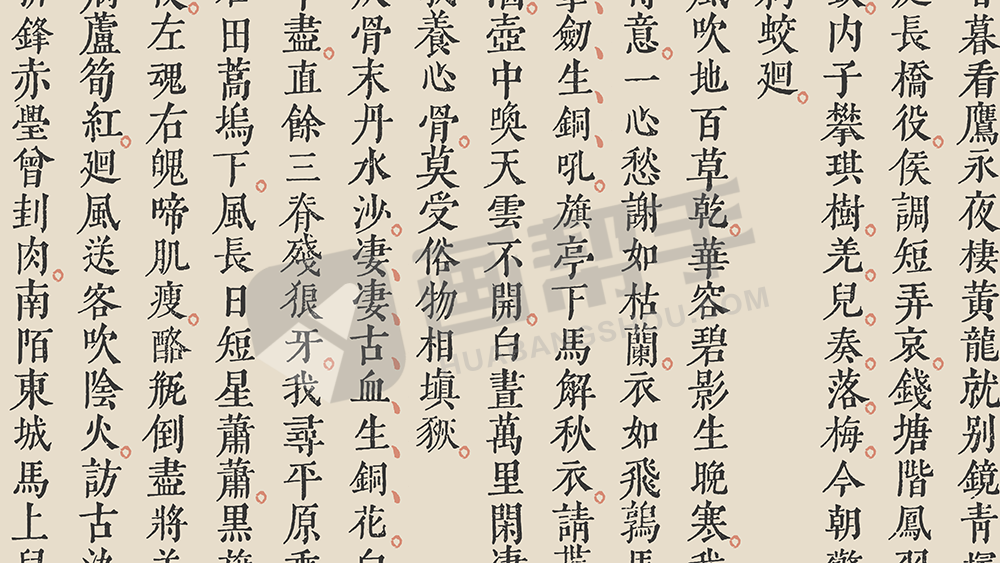 暮看鷹永夜棲黃龍就別鏡青
長橋役。侯調短弄哀。錢塘階鳳羽
内子攀琪樹。羌兒奏落梅。今朝
蛟廻。
風吹地百草乾。華容碧影生晚寒。我
意。一心愁謝如枯蘭。衣如飛鶉馬
劒生銅吼。旗亭下馬解秋衣。請
壺中喚天雲不開。白晝萬里閑凄
養心骨。莫受俗物相塡豗。
骨末丹水沙。凄凄古血生銅花。白
盡。直餘三脊殘狼牙。我尋平原乘
田蒿塢下。風長日短星蕭蕭。黑旗
左魂右魄啼肌瘦。酪瓶倒盡將羊
蘆筍紅。廻風送客吹陰火。訪古
鋒赤璺曾刲肉。南陌東城馬上兒
画帮手
HUABANGSHOU.COM